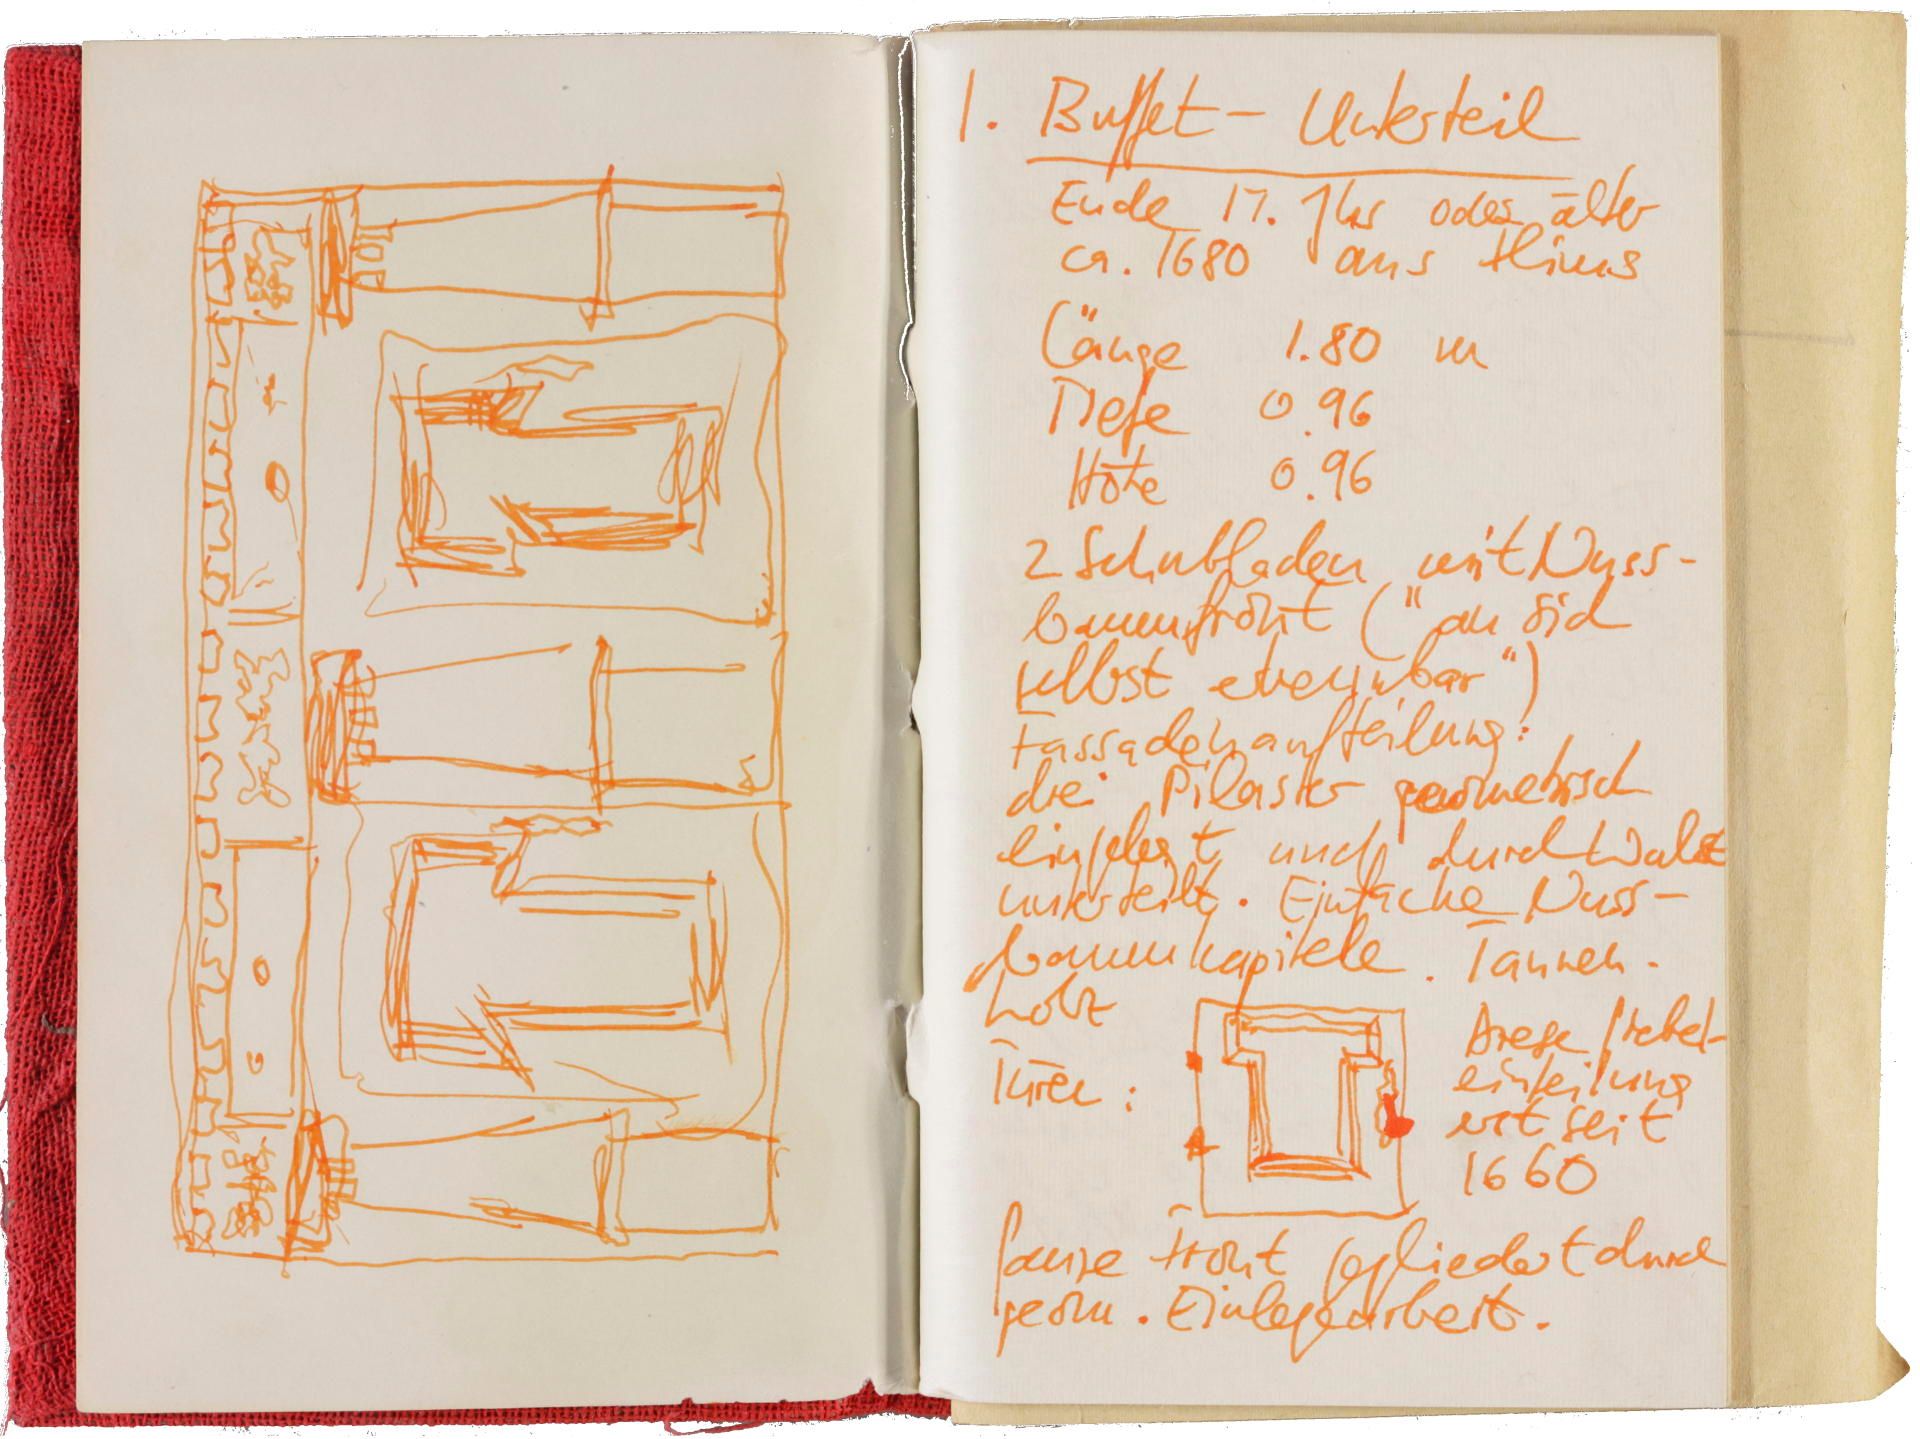 1. Buffet - Unterteil
Ende 17. Jhr oder älter
ca. 1680 aus Flims
Länge 1.80 m
Tiefe 0.96
Höhe 0.96
2 Schubladen mit Nuss-
baumfront ("an sich
selbst
Fassadenaufteilung:
die Pilaster geometrisch
eingelegt und durch Wulst
unterteilt. Einfache Nuss-
baumkapitele. Tannen-
holz
Türen:
Diese
einteilung
erst seit
1660
ganze Front gegliedert durch
geom. Einlegearbeit.